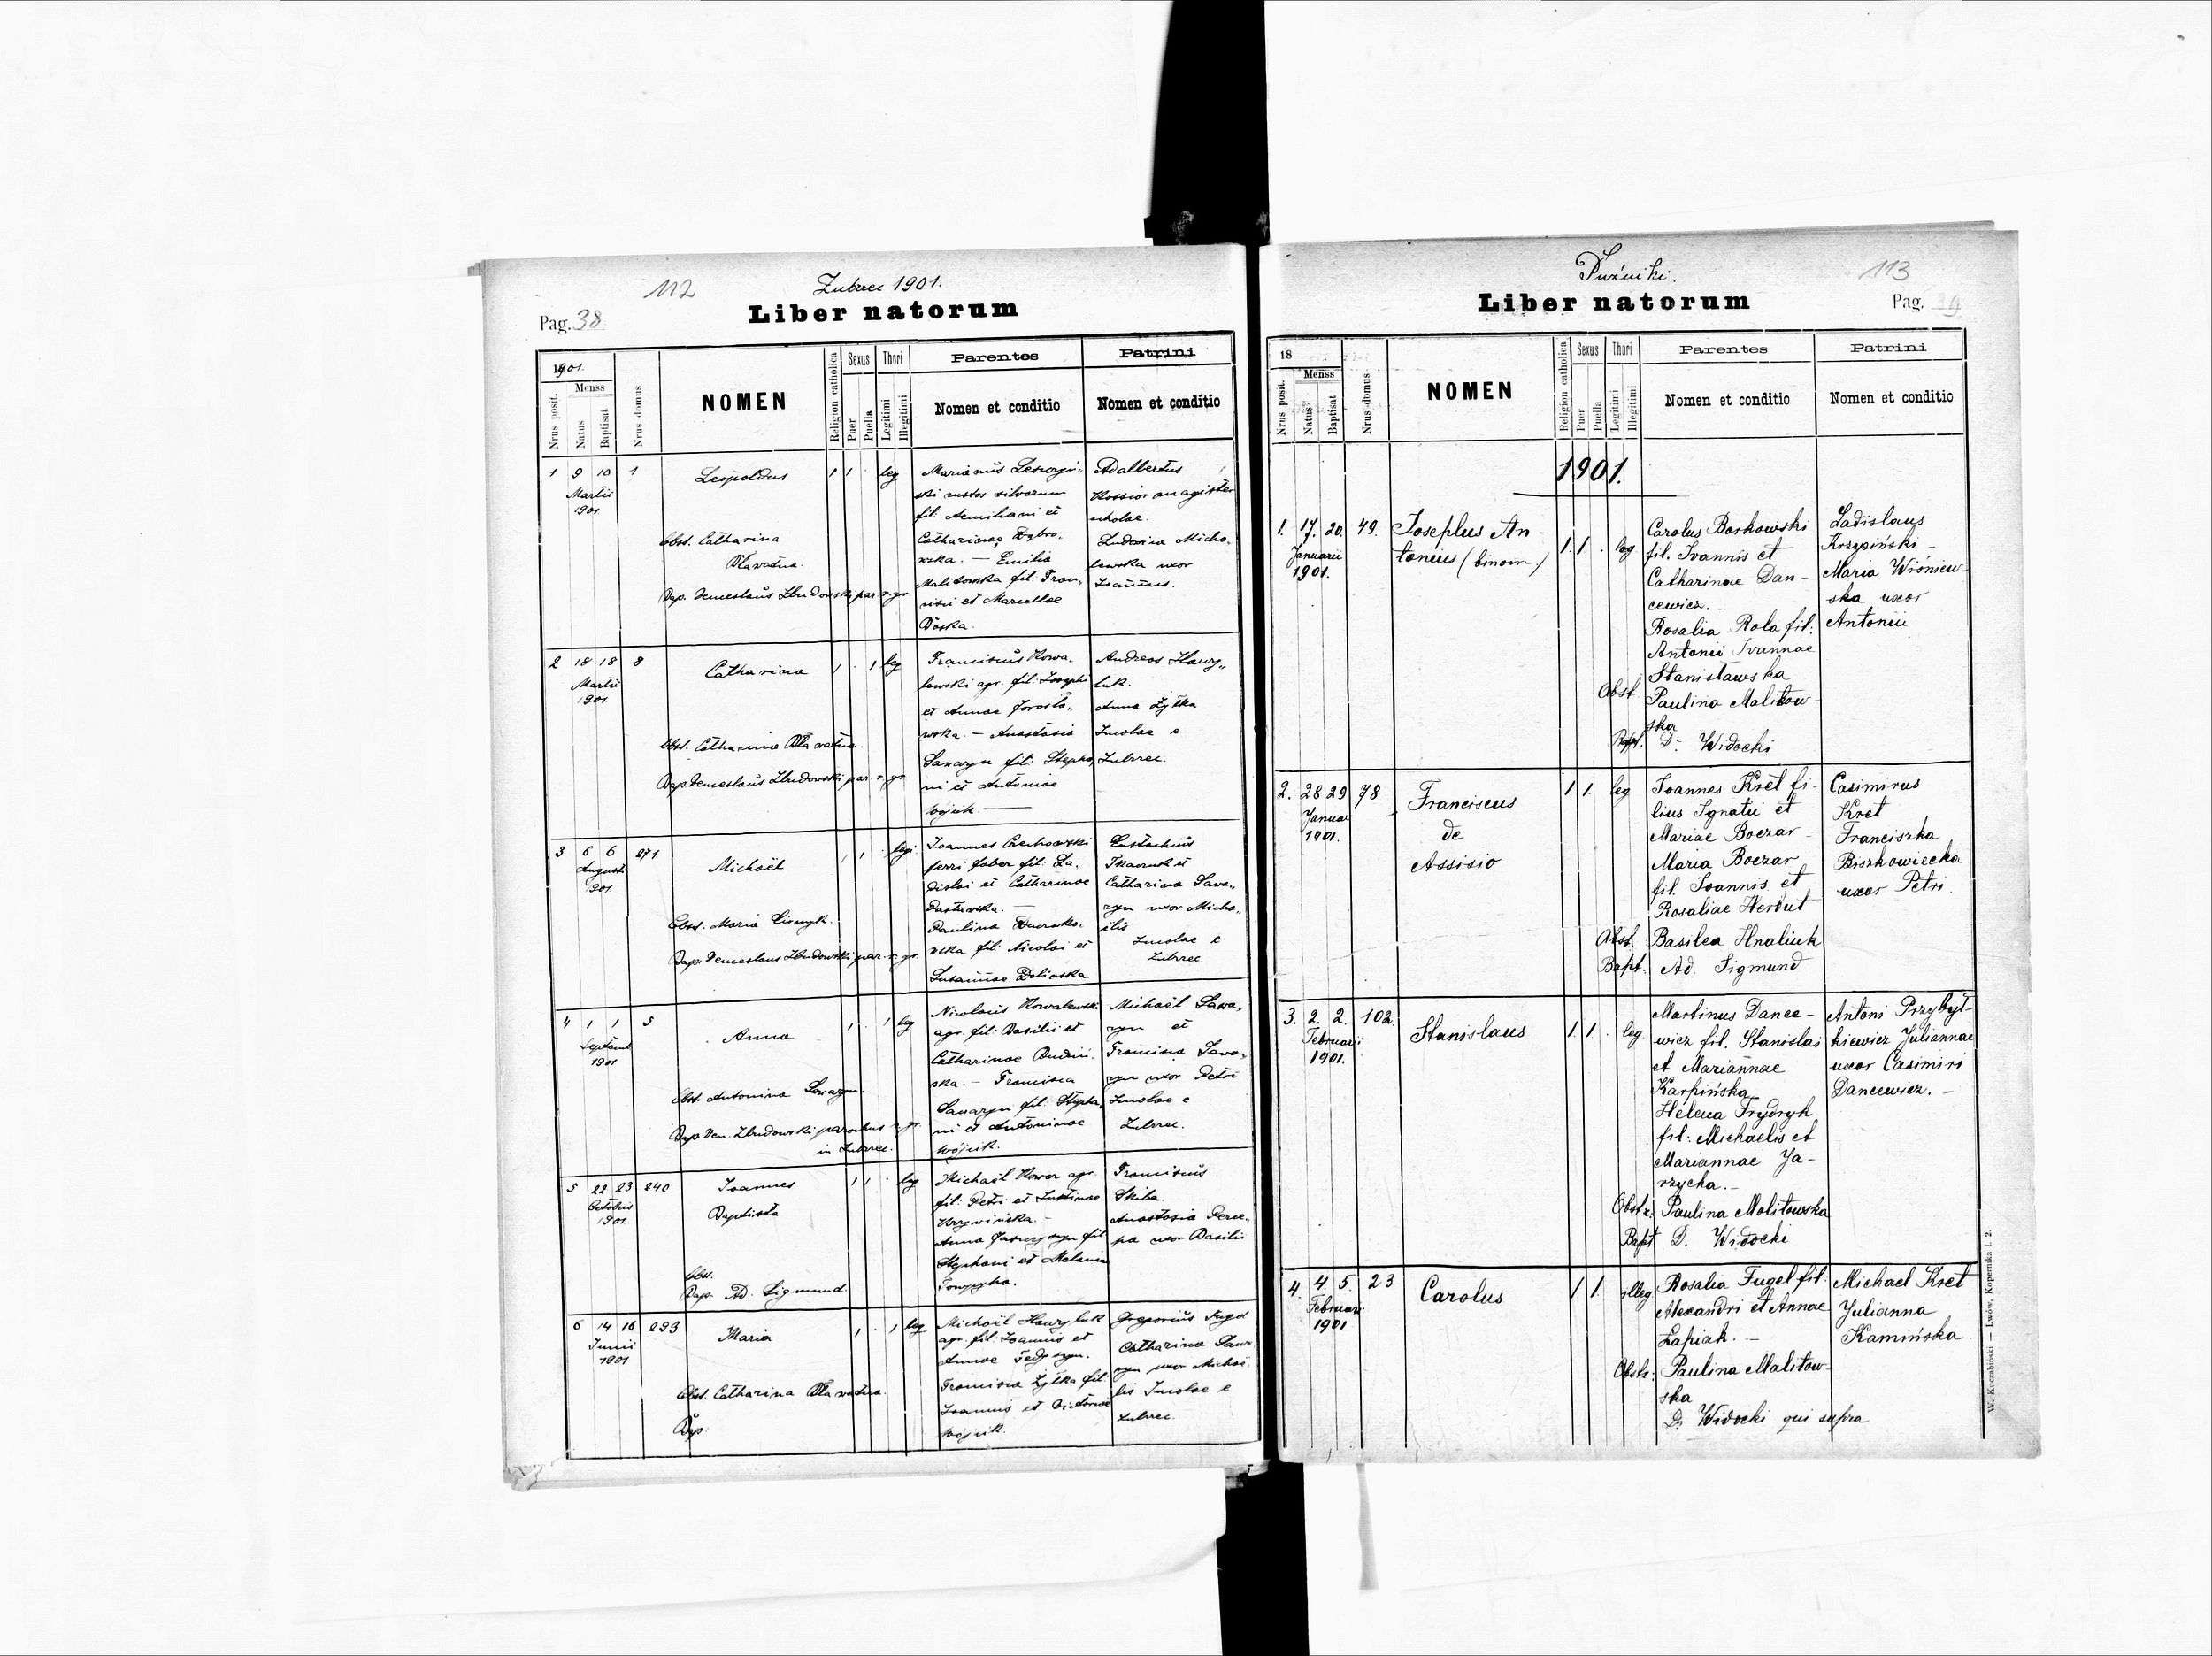 112
Zubrec 1901.
Liber natorum
Pag. 38
1901.
Menss
Nrus posit.
Natus
Baptisat
Nrus domus
NOMEN
Religion catholica
Sexus
Puer
Puella
Thori
Legitimi
Illegitimi
Parentes
Nomen et conditio
Patrini
Nomen et conditio
1 9 10 1
Martii
1901.
Leopoldus
1 1 leg
Obst. Catharina
Bap. Demeslaus Zbudowski par. r. gr.
Marianus
ski custos silvarum
fil. Aemiliani et
Catharinae Dybro-
wska. — Emilia
Malitowska fil. Fran-
cisci et Marcellae
Adalbertus
Kossior magister
scholae.
Ludovica Micha-
lewska uxor
Ioannis.
2 18 18 8
Martii
1901.
Catharina
1 1 leg
Obst. Catharina
Bap. Demeslaus Zbudowski par. r. gr.
Franciscus Kowa-
lewski agr. fil. Josephi
et Annae
wska. — Anastasia
Sawaryn fil. Stepha-
ni et Antoninae
Wójcik.
Andreas Hawry-
luk.
Anna Żytka
Incolae e
Zubrec.
3 6 6 271
Augusti
1901.
Michaël
1 1 legi.
Obst. Maria
Bap. Demeslaus Zbudowski par. r. gr.
Ioannes
ferri faber fil. La-
dislai et Catharinae
Pastawska. —
Paulina
wska fil. Nicolai et
Susannae
Eustachius
Tkaczuk et
Catharina Sawa-
ryn uxor Micha-
ëlis
Incolae e
Zubrec.
4 1 1 5
Septemb
1901
Anna
1 1 leg
Obst. Antonina Sawaryn
Bap. Dem. Zbudowski parochus r. gr.
in Zubrec.
Nicolaus Kowalewski
agr. fil. Basilii et
Catharinae
ska. — Francisca
Sawaryn fil. Stepha-
ni et Antoninae
Wójcik.
Michaël Sawa-
ryn et
Francisca Sawa-
ryn uxor Petri
Incolae e
Zubrec.
5 22 23 240
Octobris
1901.
Ioannes
Baptista
1 1 leg
Obst.
Bap. Ad. Sigmund
Michaël agr.
fil. Petri et Justinae
Anna fil.
Stephani et Melania
Franciscus
Skiba.
Anastasia
uxor Basilii
6 14 16 293
Junii
1901
Maria
1 1 leg
Obst. Catharina
Bap.
Michaël Hawryluk
agr. fil. Ioannis et
Annae
Francisca Żytka fil.
Ioannis et Victoriae
Wójcik.
Gregorius
Catharina Sawa-
ryn uxor Michaë-
lis Incolae e
Zubrec.
Puźniki.
113
Liber natorum
Pag. 39
18
Menss
Nrus posit.
Natus
Baptisat
Nrus domus
NOMEN
Religion catholica
Sexus
Puer
Puella
Thori
Legitimi
Illegitimi
Parentes
Nomen et conditio
Patrini
Nomen et conditio
1901.
1. 17. 20. 49.
Januarii
1901.
Josephus An-
tonius (binom.)
1. 1. leg
Carolus Borkowski
fil. Ivannis et
Catharinae Dan-
cewicz. —
Rosalia Rola fil:
Antonii Ivannae
Stanisławska
Obst. Paulina Malitow-
ska
Bapt. D. Widocki
Ladislaus
Krzypiński —
Maria Wiśniew-
ska uxor
Antonii
2. 28 29 78
Januar
1901.
Franciscus
de
Assisio
1. 1. leg
Joannes Kret fi-
lius Ignatii et
Mariae Boczar —
Maria Boczar
fil. Joannis et
Rosaliae Herbut
Obst. Basilea Hnaliuk
Bapt. Ad. Sigmund
Casimirus
Kret
Franciszka
Biszkowiecka
uxor Petri.
3. 2. 2. 102.
Februarii
1901.
Stanislaus
1. 1. leg
Martinus Dance-
wicz fil. Stanislai
et Mariannae
Karpińska
Helena Frydryk
fil: Michaelis et
Mariannae Ja-
rzycha. —
Obstr. Paulina Malitowska
Bapt D. Widocki
Antoni Przybył-
kiewicz Juliannae
uxor Casimiri
Dancewicz. —
4. 4. 5. 23
Februar.
1901
Carolus
1 1. illeg
Rosalia Fugel fil.
Alexandri et Annae
Łapiak. —
Obstr: Paulina Malitow-
ska
D. Widocki qui supra
Michael Kret
Julianna
Kamińska.
W. Koczabiński — Lwów, Kopernika l. 2.